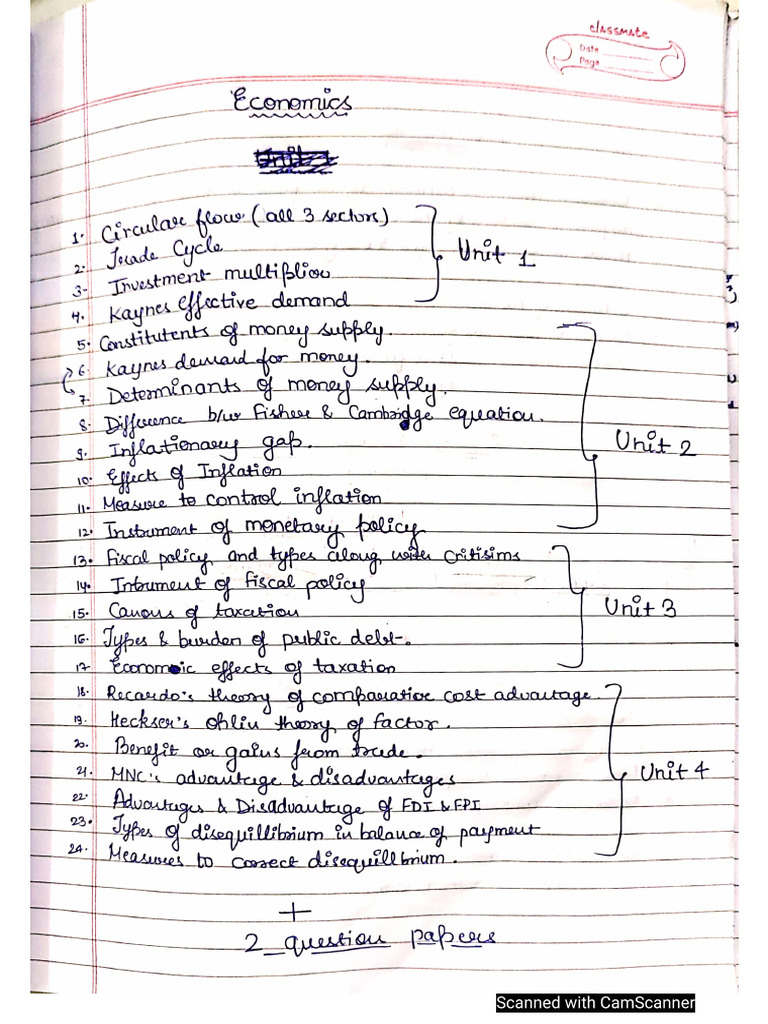 classmate
Date
Page
Economics
1. Circular flow (all 3 sectors)
2. Trade Cycle
3- Investment multiplier
Unit 1
4. Kaynes effective demand
5. Constitutents of money supply.
6. Kaynes demand for money.
7. Determinants of money supply.
8. Difference b/w Fisher & Cambridge equation.
9. Inflationary gap.
Unit 2
10. Effects of Inflation
11. Measure to control inflation
12. Instrument of monetary policy
13. Fiscal policy and types along with Critisims
14. Intrument of fiscal policy
15. Canons of taxation
Unit 3
16. Types & burden of public debt.
17 Economic effects of taxation
18. Recardo's theory of comparative cost advantage.
19. Heckser's ohlin theory of factor.
20. Benefit or gains from trade.
21. MNC's advantage & disadvantages
Unit 4
22. Advantages & Disadvantage of FDI & FPI
23. Types of disequillibrium in balance of payment
24. Measures to correct disequillbrium.
+
2 question papers
Scanned with CamScanner